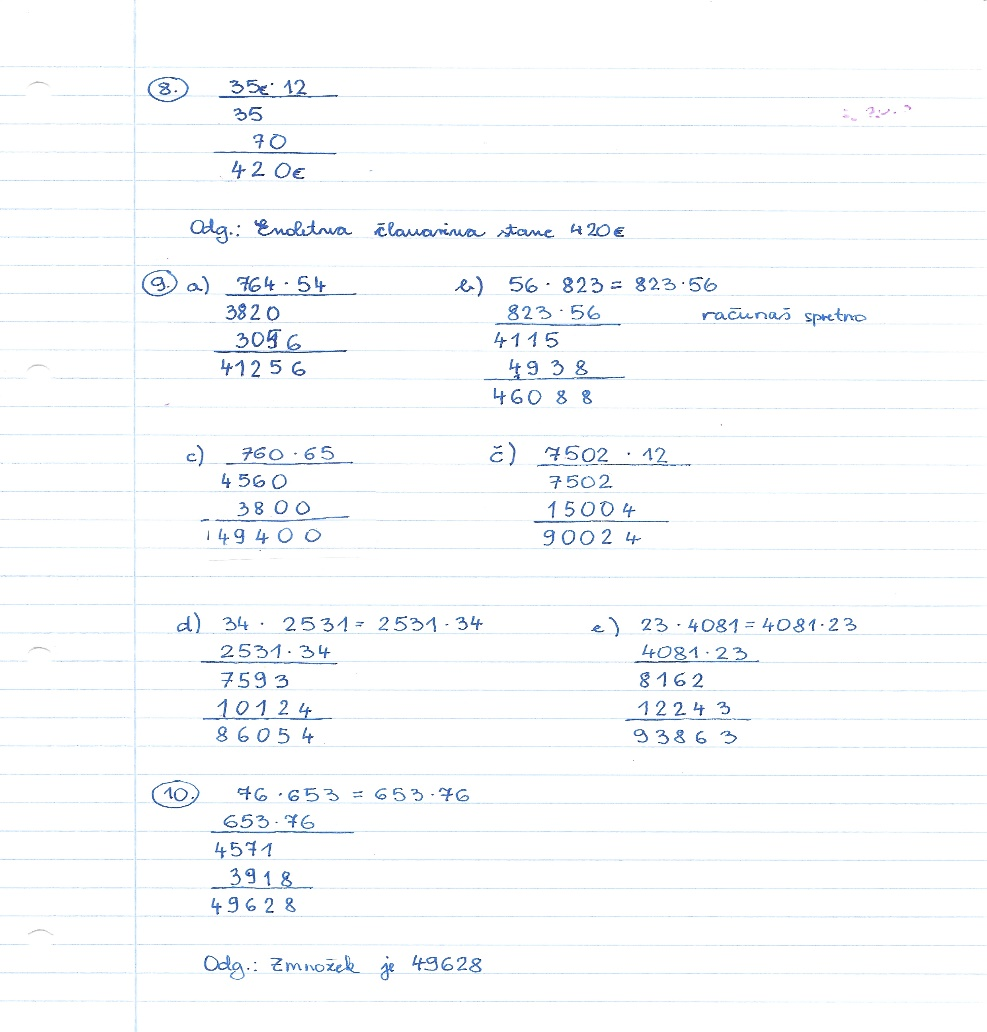 8. 35€ · 12
35
70
420€
Odg.: Enoletna članarina stane 420€
9. a) 764 · 54
3820
3056
41256
b) 56 · 823 = 823 · 56
823 · 56
računaš spretno
4115
4938
46088
c) 760 · 65
4560
3800
49400
č) 7502 · 12
7502
15004
90024
d) 34 · 2531 = 2531 · 34
2531 · 34
7593
10124
86054
e) 23 · 4081 = 4081 · 23
4081 · 23
8162
12243
93863
10. 76 · 653 = 653 · 76
653 · 76
4571
3918
49628
Odg.: Zmnožek je 49628